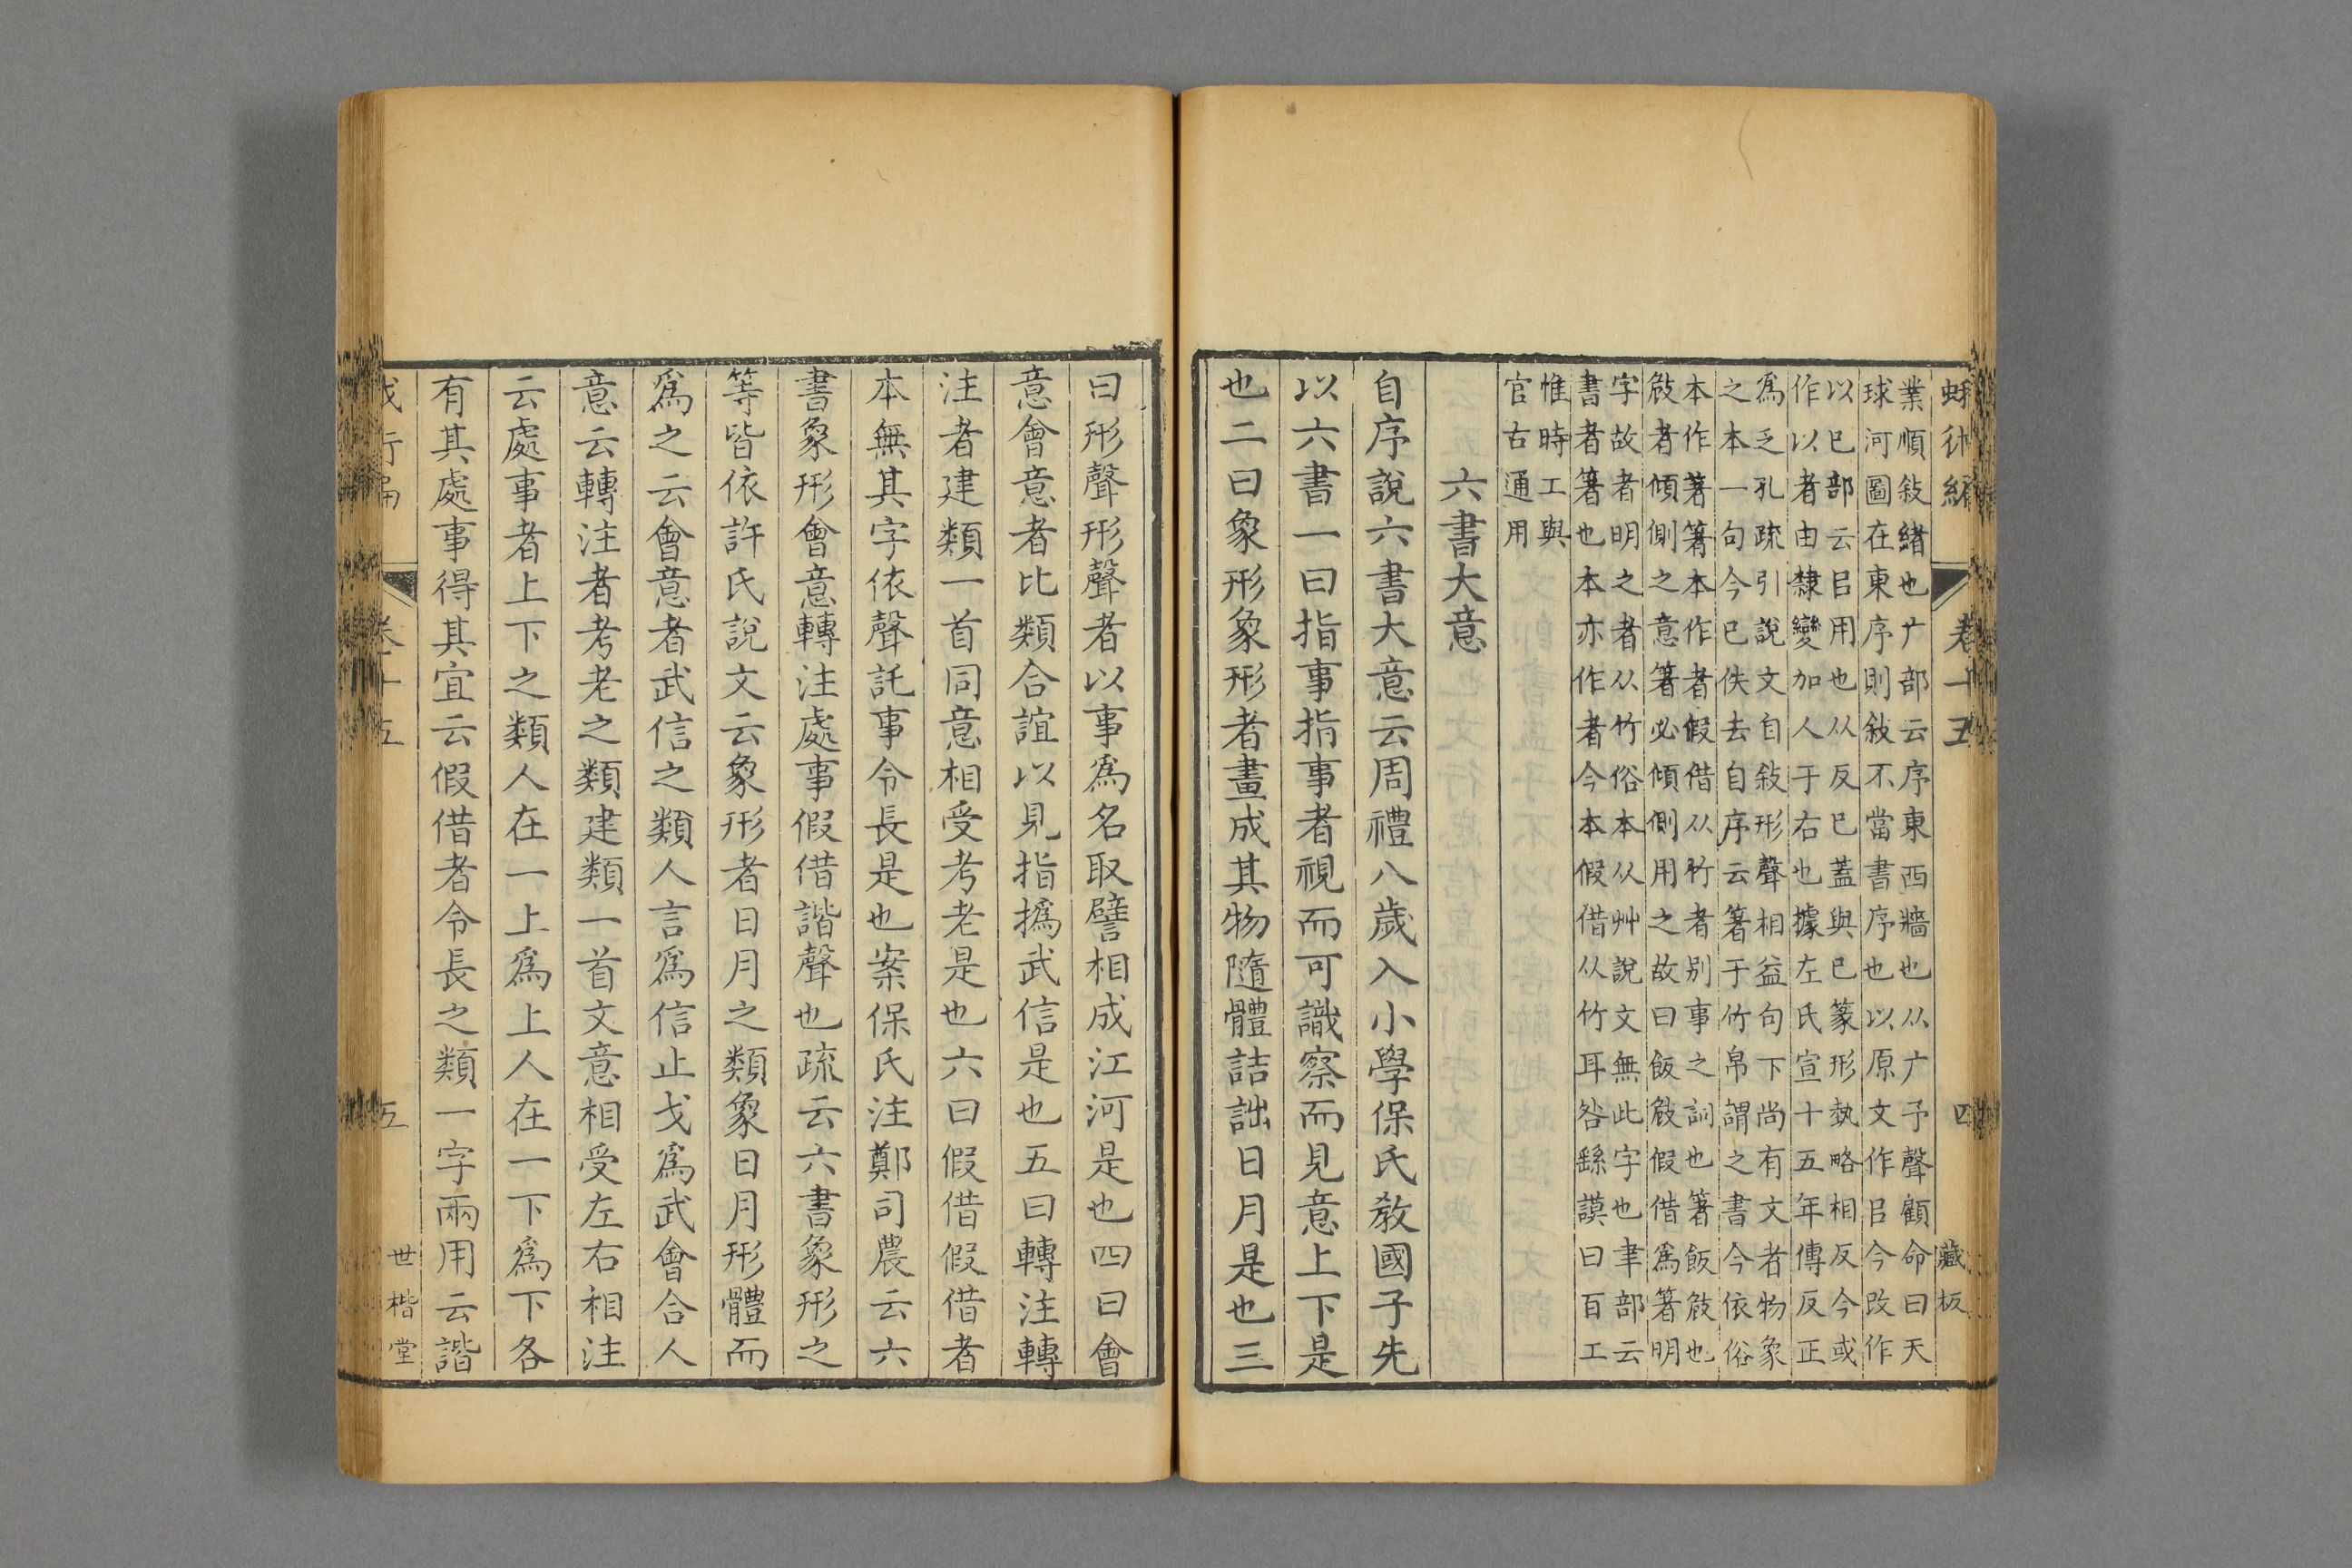 業順敍緒也广部云序東西牆也从广予聲顧命曰天
球河圖在東序則敍不當書序也以原文作㠯今改作
以巳部云㠯用也从反巳蓋與巳篆形埶略相反今或
作以者由隸變加人于右也據左氏宣十五年傳反正
爲乏孔疏引說文自敍形聲相益句下尚有文者物象
之本一句今已佚去自序云箸于竹帛謂之書今依俗
本作著箸本作者假借从竹者别事之訓也箸飯攲也
攲者傾側之意箸必傾側用之故曰飯攲假借爲箸明
字故者明之者从竹俗本从艸說文無此字也聿部云
書者箸也本亦作者今本假借从竹耳咎繇謨曰百工
惟時工與
官古通用
六書大意
自序說六書大意云周禮八歲入小學保氏教國子先
以六書一曰指事指事者視而可識察而見意上下是
也二曰象形象形者畫成其物隨體詰詘日月是也三
卷十五
四
藏板
曰形聲形聲者以事爲名取譬相成江河是也四曰會
意會意者比類合誼以見指撝武信是也五曰轉注轉
注者建類一首同意相受考老是也六曰假借假借者
本無其字依聲託事令長是也案保氏注鄭司農云六
書象形會意轉注處事假借諧聲也疏云六書象形之
等皆依許氏說文云象形者日月之類象日月形體而
爲之云會意者武信之類人言爲信止戈爲武會合人
意云轉注者考老之類建類一首文意相受左右相注
云處事者上下之類人在一上爲上人在一下爲下各
有其處事得其宜云假借者令長之類一字兩用云諧
五
世楷堂